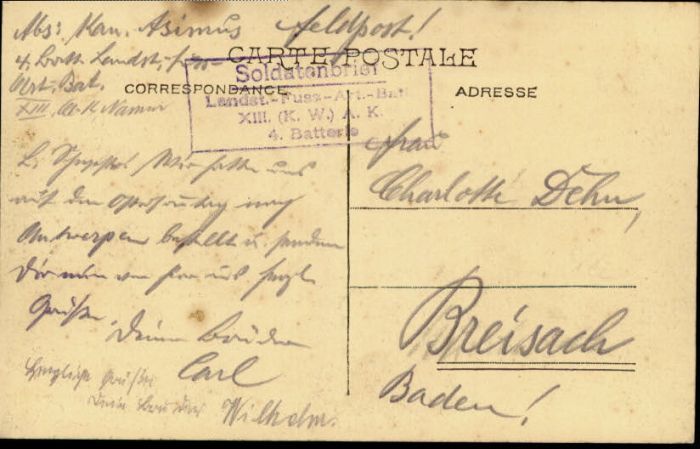 Abs: Kan. Asimus Feldpost!
4. Batt. Landst.-Fuss-
Art.-Bat.
XIII. A. K. Namur
CARTE POSTALE
CORRESPONDANCE
ADRESSE
Soldatenbrief
Landst.-Fuss-Art.-Batl.
XIII. (K. W.) A. K.
4. Batterie
L. Schwester! Wir hatten uns
auf den Ostersonntag nach
Antwerpen bestellt u. senden
Dir nun von hier aus herzl.
Grüße.
Deine Brüder
Carl
Herzliche Grüße
Dein Bruder Wilhelm.
Frau
Charlotte Dehn,
Breisach
Baden!